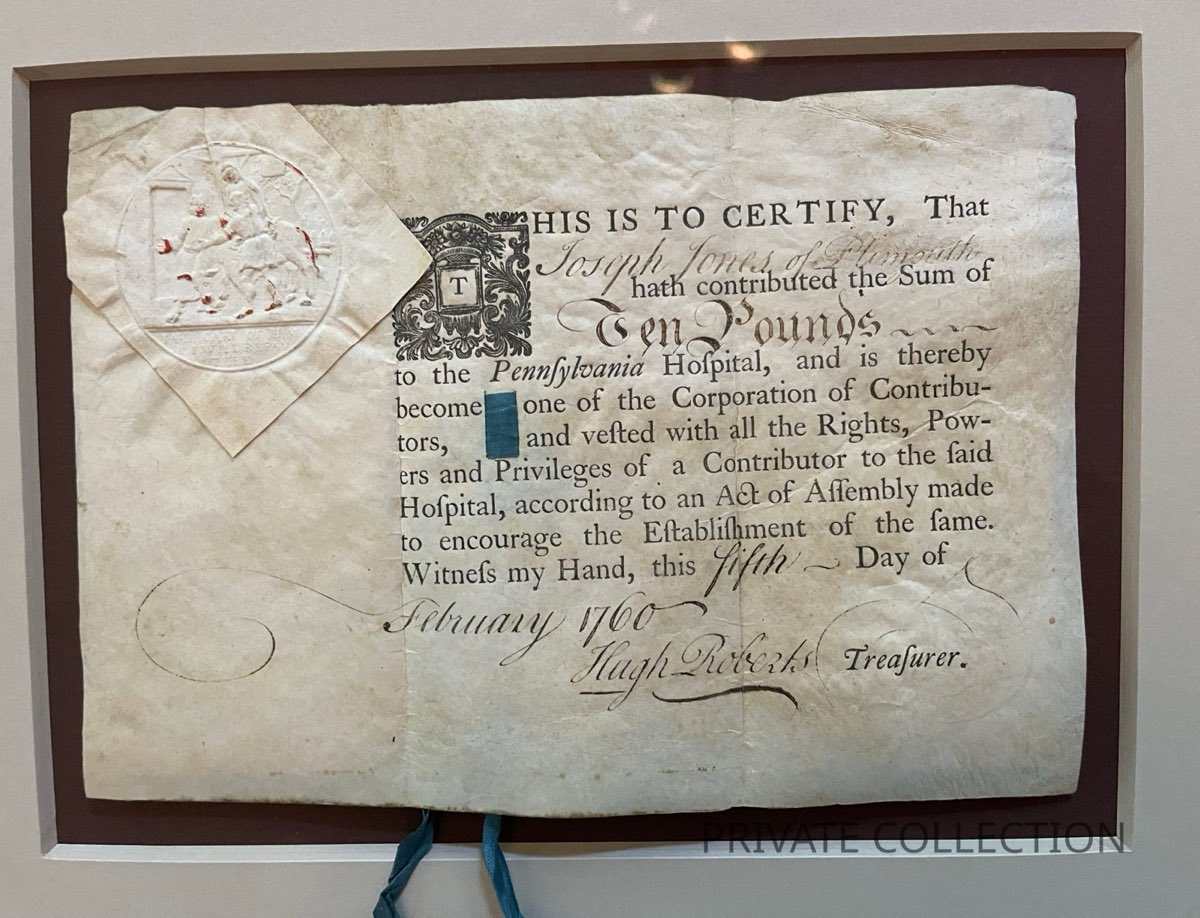 THIS IS TO CERTIFY, That
Joseph Jones of Plimouth
hath contributed the Sum of
Ten Pounds
to the Pennſylvania Hoſpital, and is thereby
become one of the Corporation of Contribu-
tors, and veſted with all the Rights, Pow-
ers and Privileges of a Contributor to the ſaid
Hoſpital, according to an Act of Aſſembly made
to encourage the Eſtabliſhment of the ſame.
Witneſs my Hand, this fifth Day of
February 1760
Hugh Roberts Treaſurer.
PRIVATE COLLECTION